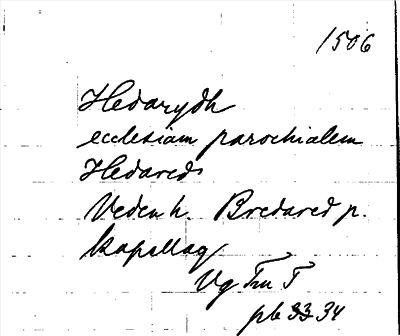 1506
Hedarydh
ecclesiam parochialem
Hedareds
Veden h. Bredared p.
kapellag
Vg Tru T
pb 33 34